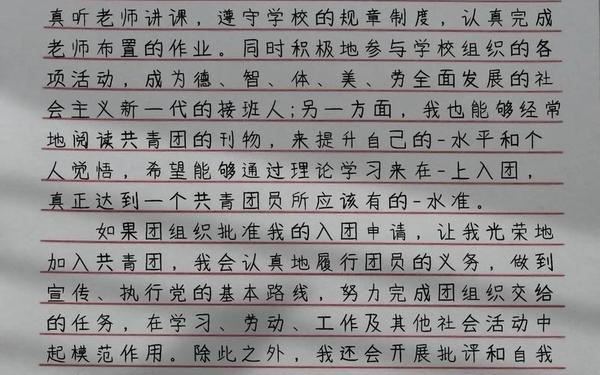 真听老师讲课，遵守学校的规章制度，认真完成
老师布置的作业。同时积极地参与学校组织的各
项活动，成为德、智、体、美、劳全面发展的社
会主义新一代的接班人;另一方面，我也能够经常
地阅读共青团的刊物，来提升自己的-水平和个
人觉悟，希望能够通过理论学习来在-上入团，
真正达到一个共青团员所应该有的-水准。
如果团组织批准我的入团申请，让我光荣地
加入共青团，我会认真地履行团员的义务，做到
宣传、执行党的基本路线，努力完成团组织交给
的任务，在学习、劳动、工作及其他社会活动中
起模范作用。除此之外，我还会开展批评和自我